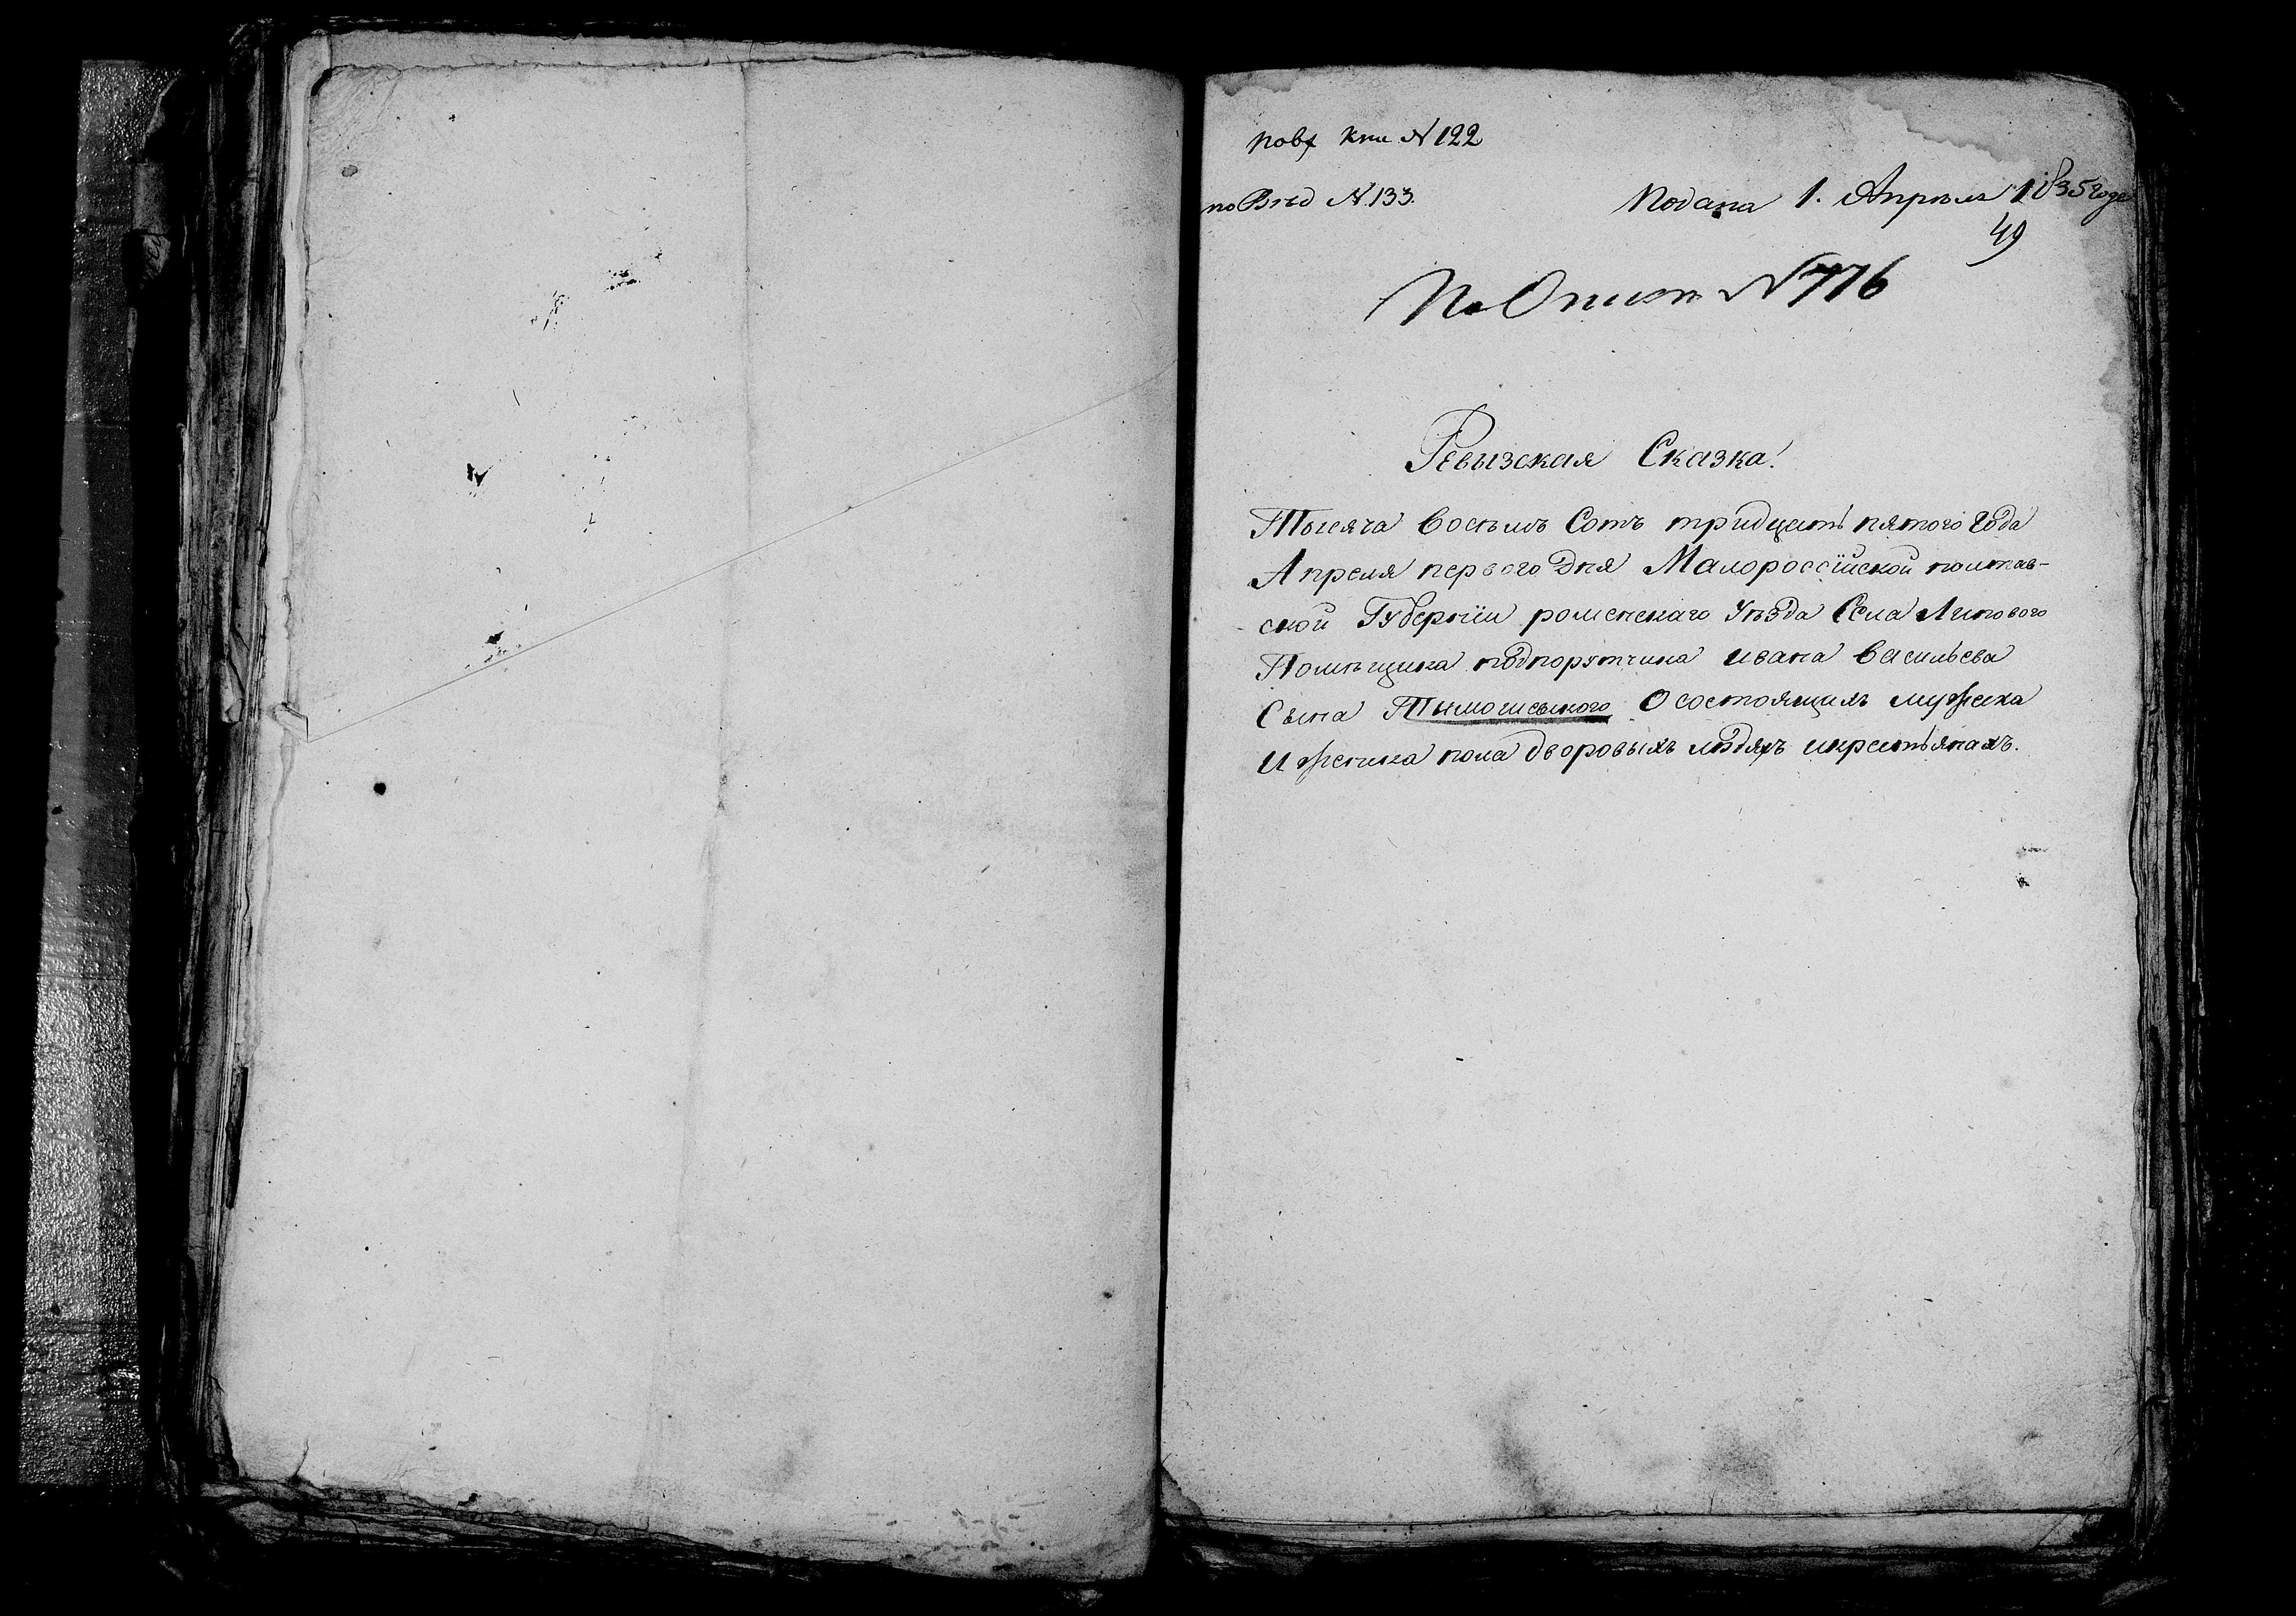 по вх Кни № 122
по Вѣд № 133.
Подана 1. Апрѣля 1835 года
49
По Описи № 776
Ревызская Сказка.
Тысяча восемь Сотъ тридцать пятого года
Апреля первого дня Малороссійской полтав-
ской Губерніи роменскаго Уѣзда Села Липового
Помѣщика подпорутчика ивана васильева
Сына О состоящихъ мужеска
И женска пола дворовыхъ людяхъ икрестьянахъ.